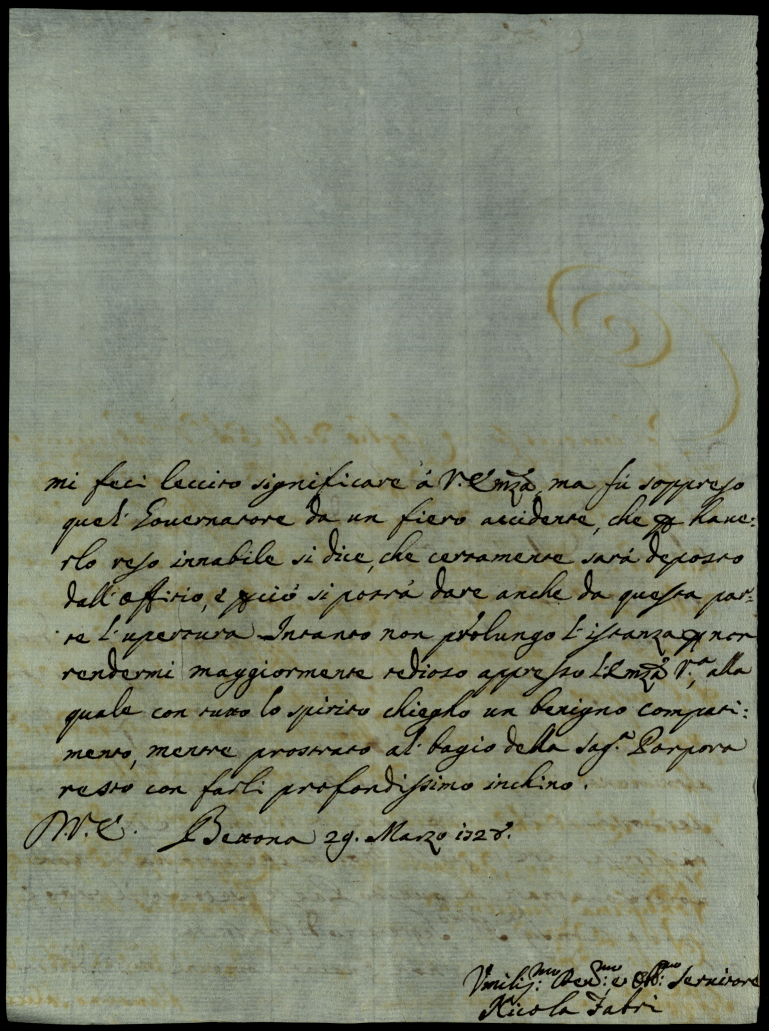 mi feci leccito significare á V. Emza, ma fú soppreso
quel Governatore da un fiero accidente, che p have:
rlo reso innabile si dice, che certamente sará deposto
dall'offitio, è pciò si potrà dare anche da questa par:
te l'upertura Intanto non prolungo l'istanza p non
rendermi maggiormente tedioso appresso l'Emza V.ra, alla
quale con tutto lo spirito chiegho un benigno compati:
mento, mentre prostrato al bagio della Sag.a Porpora
resto con farli profondissimo inchino.
D. V. E. Bettona 29. Marzo 1728.
Umiliss:mo Dev:mo, e Obb:mo Servitore
Nicola Fabri